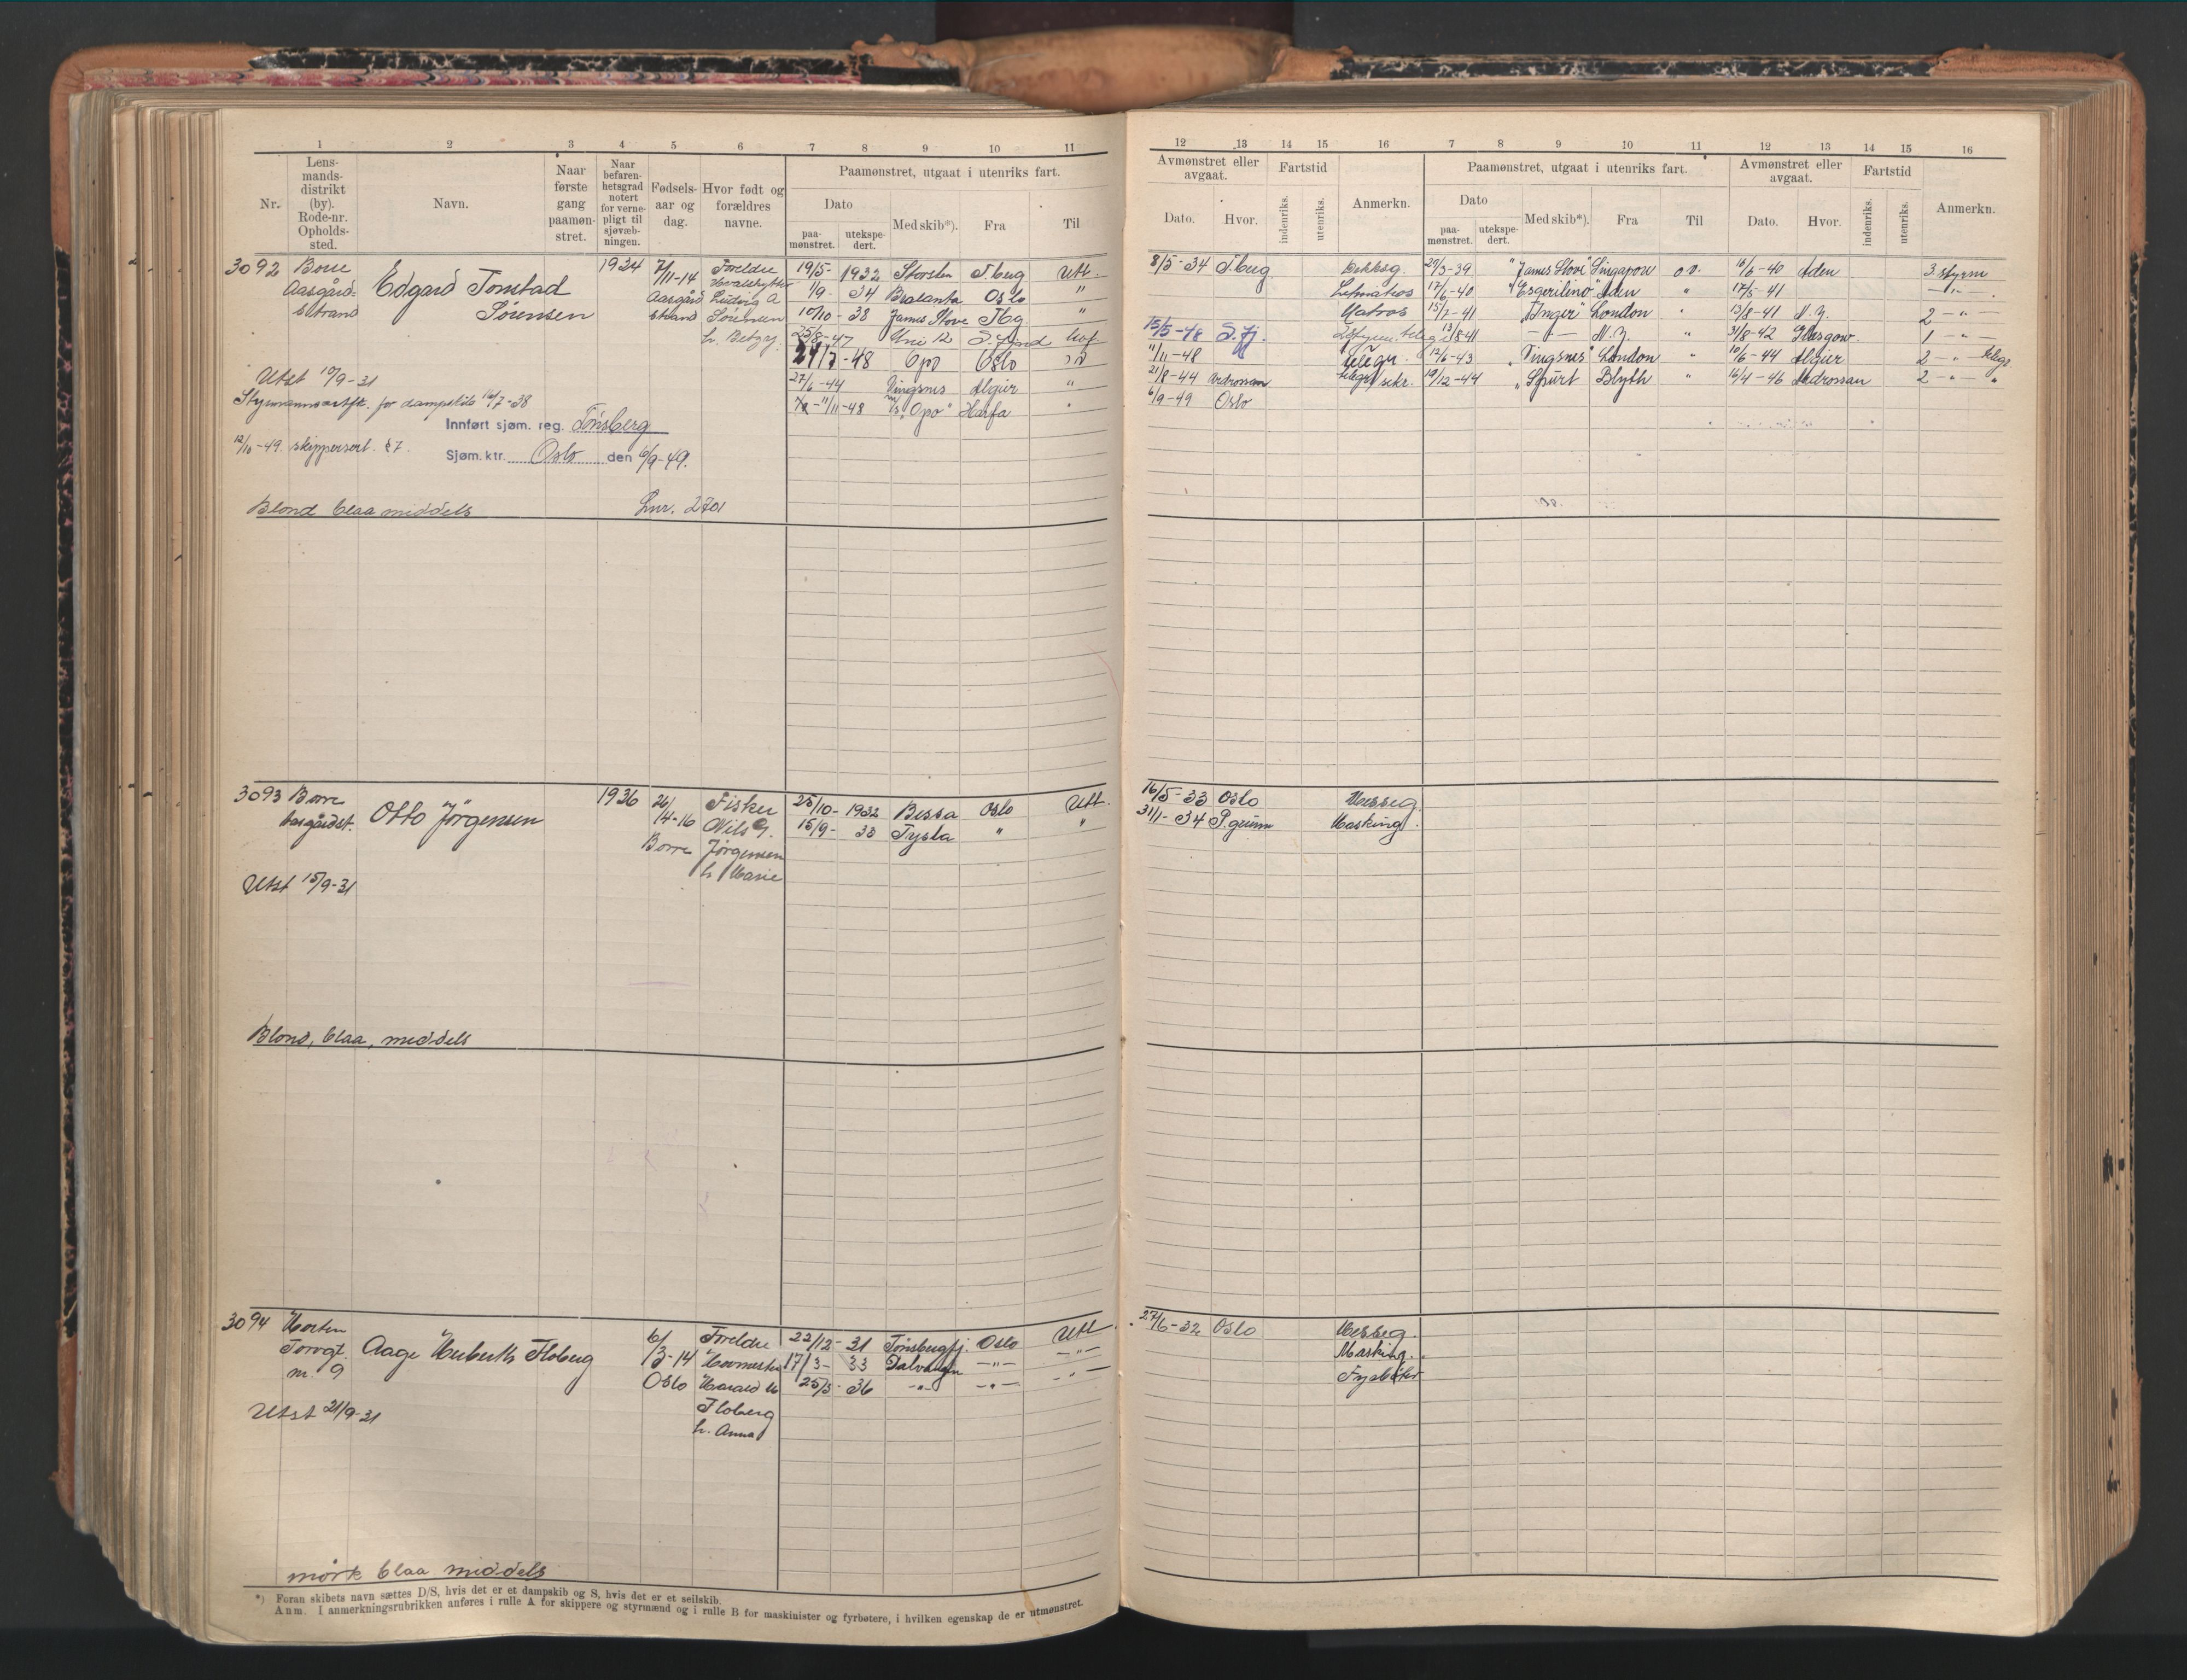 1 2 3 4 5 6 7 8 9 10 11
Nr. Lens-mands-distrikt (by). Rode-nr. Opholds-sted. Navn. Naar første gang paamøn-stret. Naar befaren-hetsgrad notert for verne-pligt til sjøvæb-ningen. Fødsels-aar og dag. Hvor født og forældres navne. Paamønstret, utgaat i utenriks fart.
Dato Med skib*). Fra Til
paa-mønstret. utekspe-dert.
3092 Borre Aasgård-strand Edgard Tonstad Sørensen 1934 7/11-14 Aasgård strand Foreldre Ludvig A Sørensen h.
19/5- 1932 Storsten T.berg Utl.
1/9- 34 Oslo "
10/10- 38 James Stove Tbg. "
25/8-47 Uni 12 S.fjord hvf
24/7-48 Opo Oslo
27/6-44 Vingsnes Algier "
11/11-48 M/S "Opo" Harfa "
Utst 10/9-31
for dampskib 16/7-38
Innført sjøm. reg. Tønsberg
12/10-49. skippersert. §7.
Sjøm. ktr. Oslo den 6/9-49.
Blond blaa middels Lnr. 2701
3093 Borre Aasgårdst. Otto Jørgensen 1936 26/4-16 Borre Fisker Nils J. Jørgensen h. Marie
25/10- 1932 Bessa Oslo Utl.
15/9- 33 Tysla " "
Utst 15/9-31
Blond, blaa, middels
3094 Horten Torvgt. nr. 9 Aage Huberth Floberg 6/3-14 Oslo Foreldre Hovmester Harald M Floberg h. Anna
22/12- 31 Tønsbergfj. Oslo Utl.
17/3- 33 Dalvangen -"- -"-
25/3- 36 -"- -"- -"-
Utst 21/9-31
mørk blaa middels
*) Foran skibets navn sættes D/S, hvis det er et dampskib og S, hvis det er et seilskib.
Anm. I anmerkningsrubrikken anføres i rulle A for skippere og styrmænd og i rulle B for maskinister og fyrbøtere, i hvilken egenskap de er utmønstret.
12 13 14 15 16 7 8 9 10 11 12 13 14 15 16
Avmønstret eller avgaat. Fartstid Anmerkn. Paamønstret, utgaat i utenriks fart. Avmønstret eller avgaat. Fartstid Anmerkn.
Dato. Hvor. indenriks. utenriks. Dato Med skib*). Fra Til Dato. Hvor. indenriks. utenriks.
paa-mønstret. utekspe-dert.
8/5-34 T.berg Dekksg. 29/3-39 "James Stove" Singapore o.v. 16/6-40 Aden 3. styrm
Letmatros 17/6-40 Aden " 17/5-41 -"-
Matros 15/7-41 "Inger" London " 13/8-41 N.Y. 2 -"-
15/5-48 S.fj. 13/8-41 -"- N.Y. " 31/8-42 Glasgow 1 -"-
11/11-48 12/6-43 "Vingsnes" London " 10/6-44 Algier 2 -"- telegr.
21/8-44 Ardrossan 19/12-44 "Spurt" Blyth " 16/4-46 Ardrossan 2 -"- "
6/9-49 Oslo
16/5-33 Oslo Messeg.
31/1-34 P.grunn Masking.
27/6-32 Oslo Messeg.
Masking.
Fyrbøter